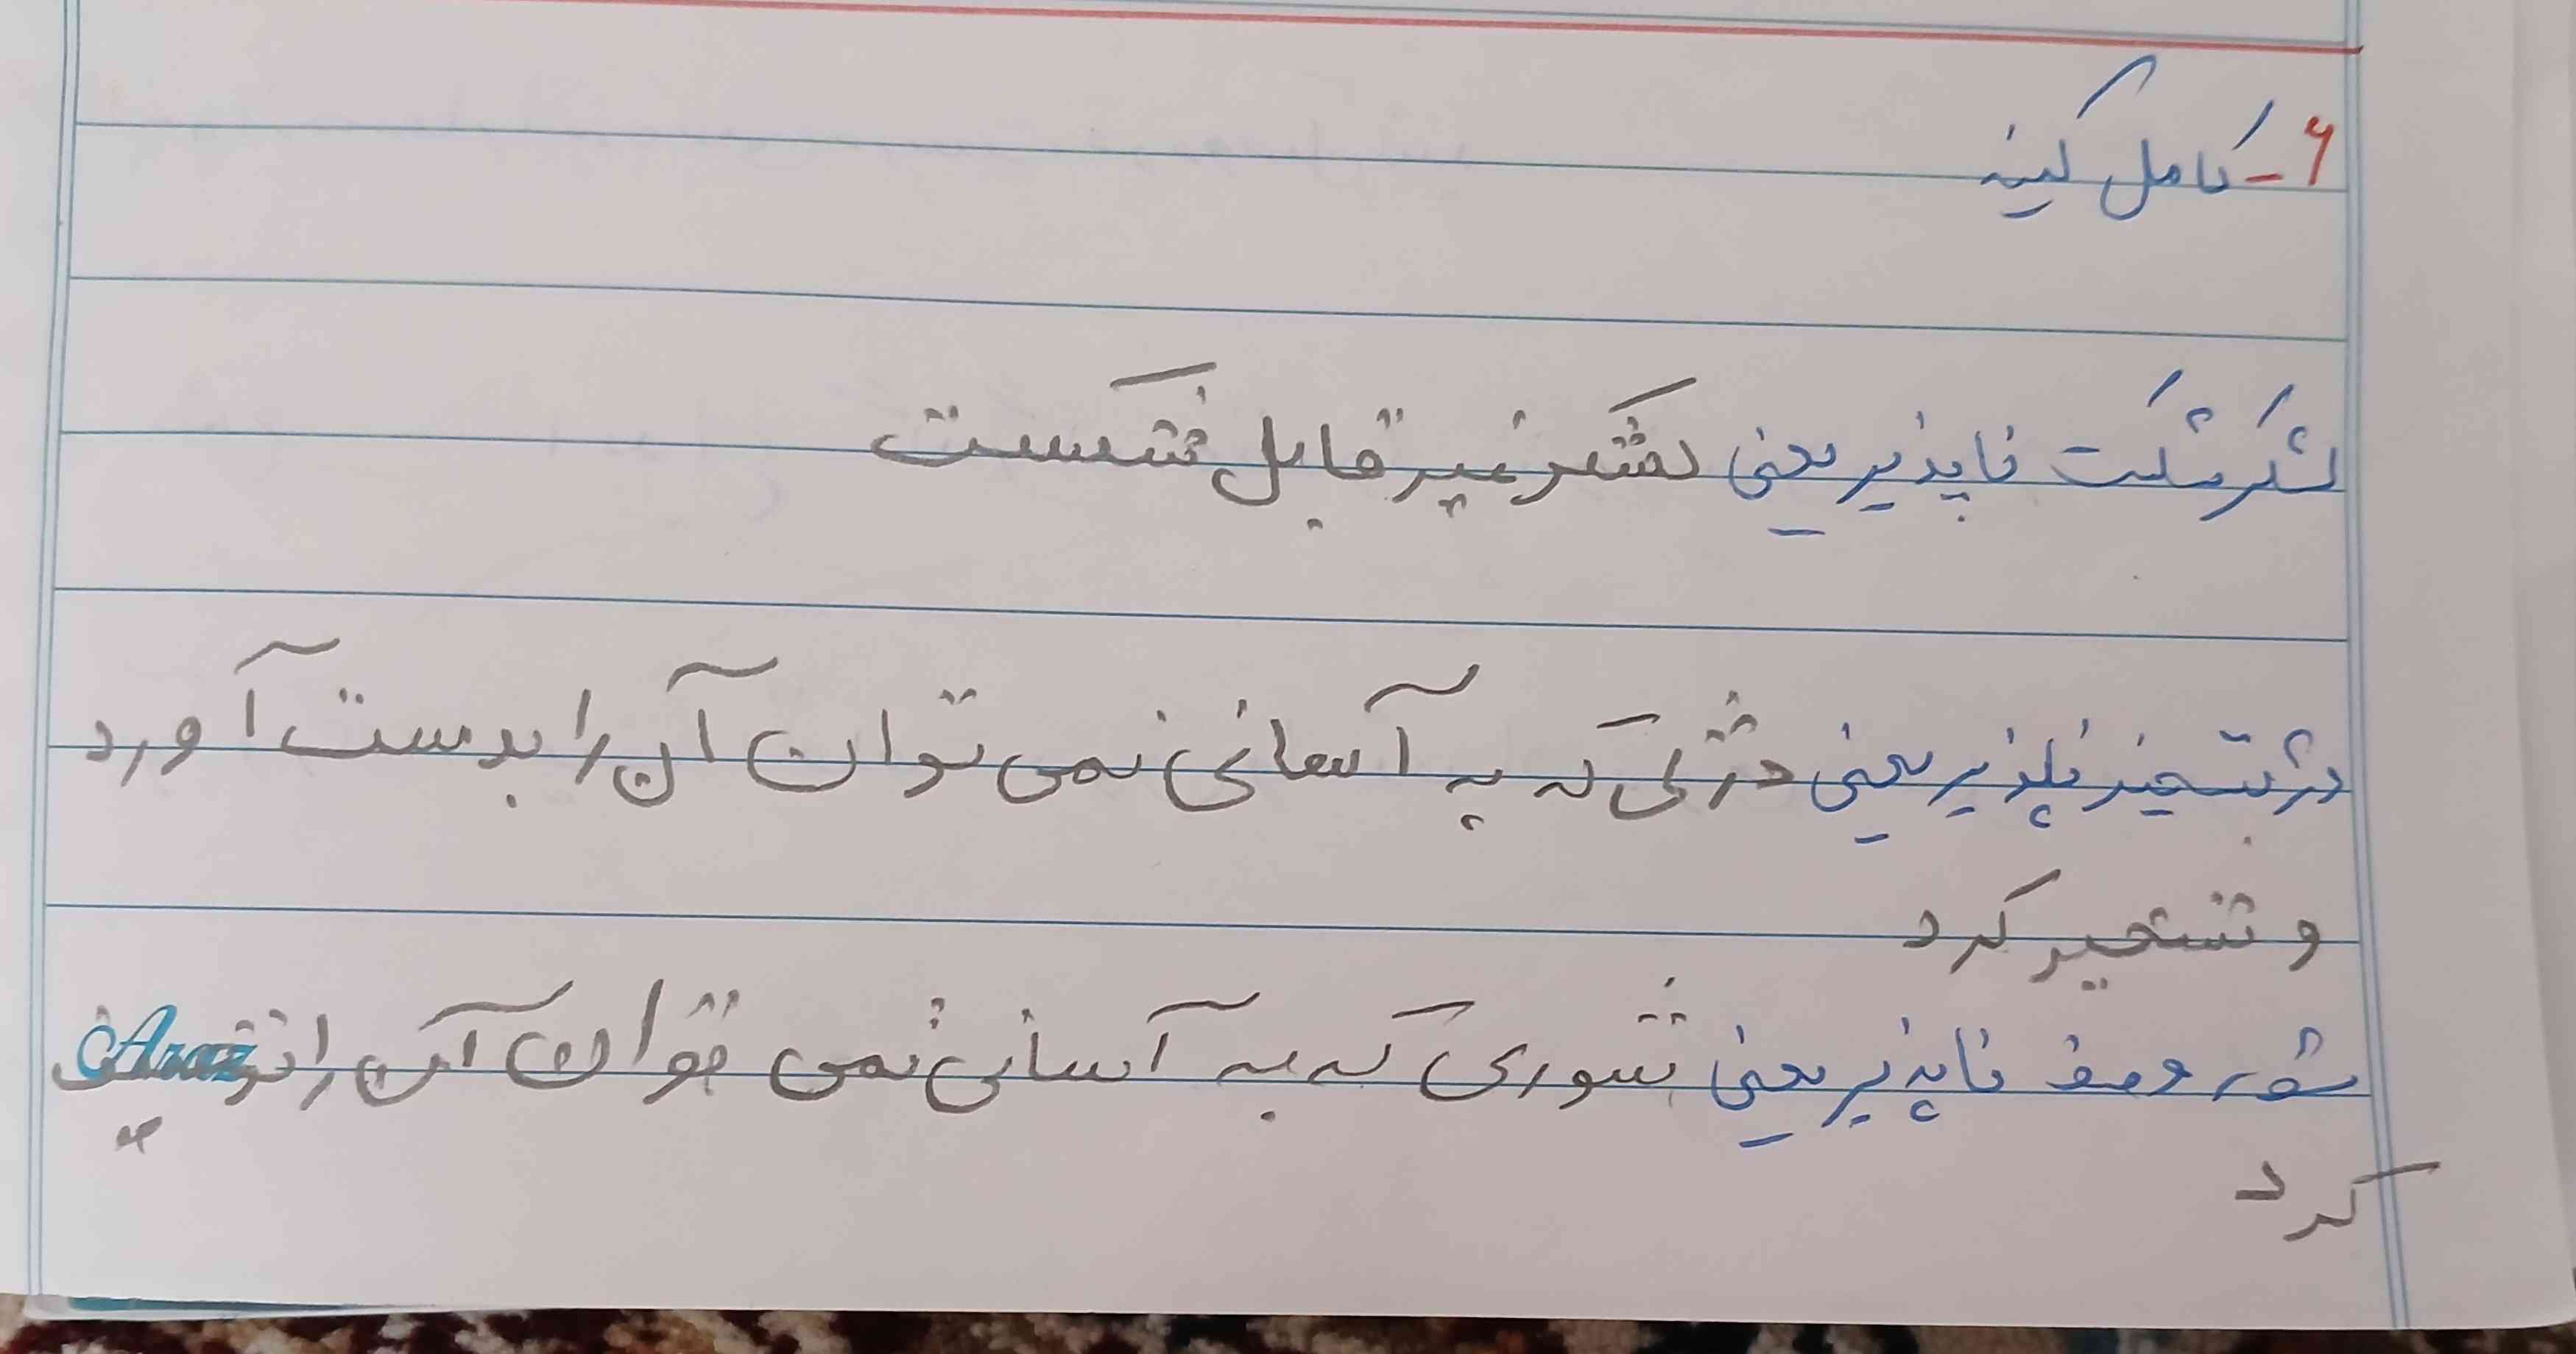 ۶- کامل کنید
لشکر شکست ناپذیر یعنی لشکر غیر قابل شکست
دژ تسخیر ناپذیر یعنی دژی که به آسانی نمی توان آن را بدست آورد
و تسخیر کرد
شور وصف ناپذیر یعنی شوری که به آسانی نمی توان آن را توصیف
کرد